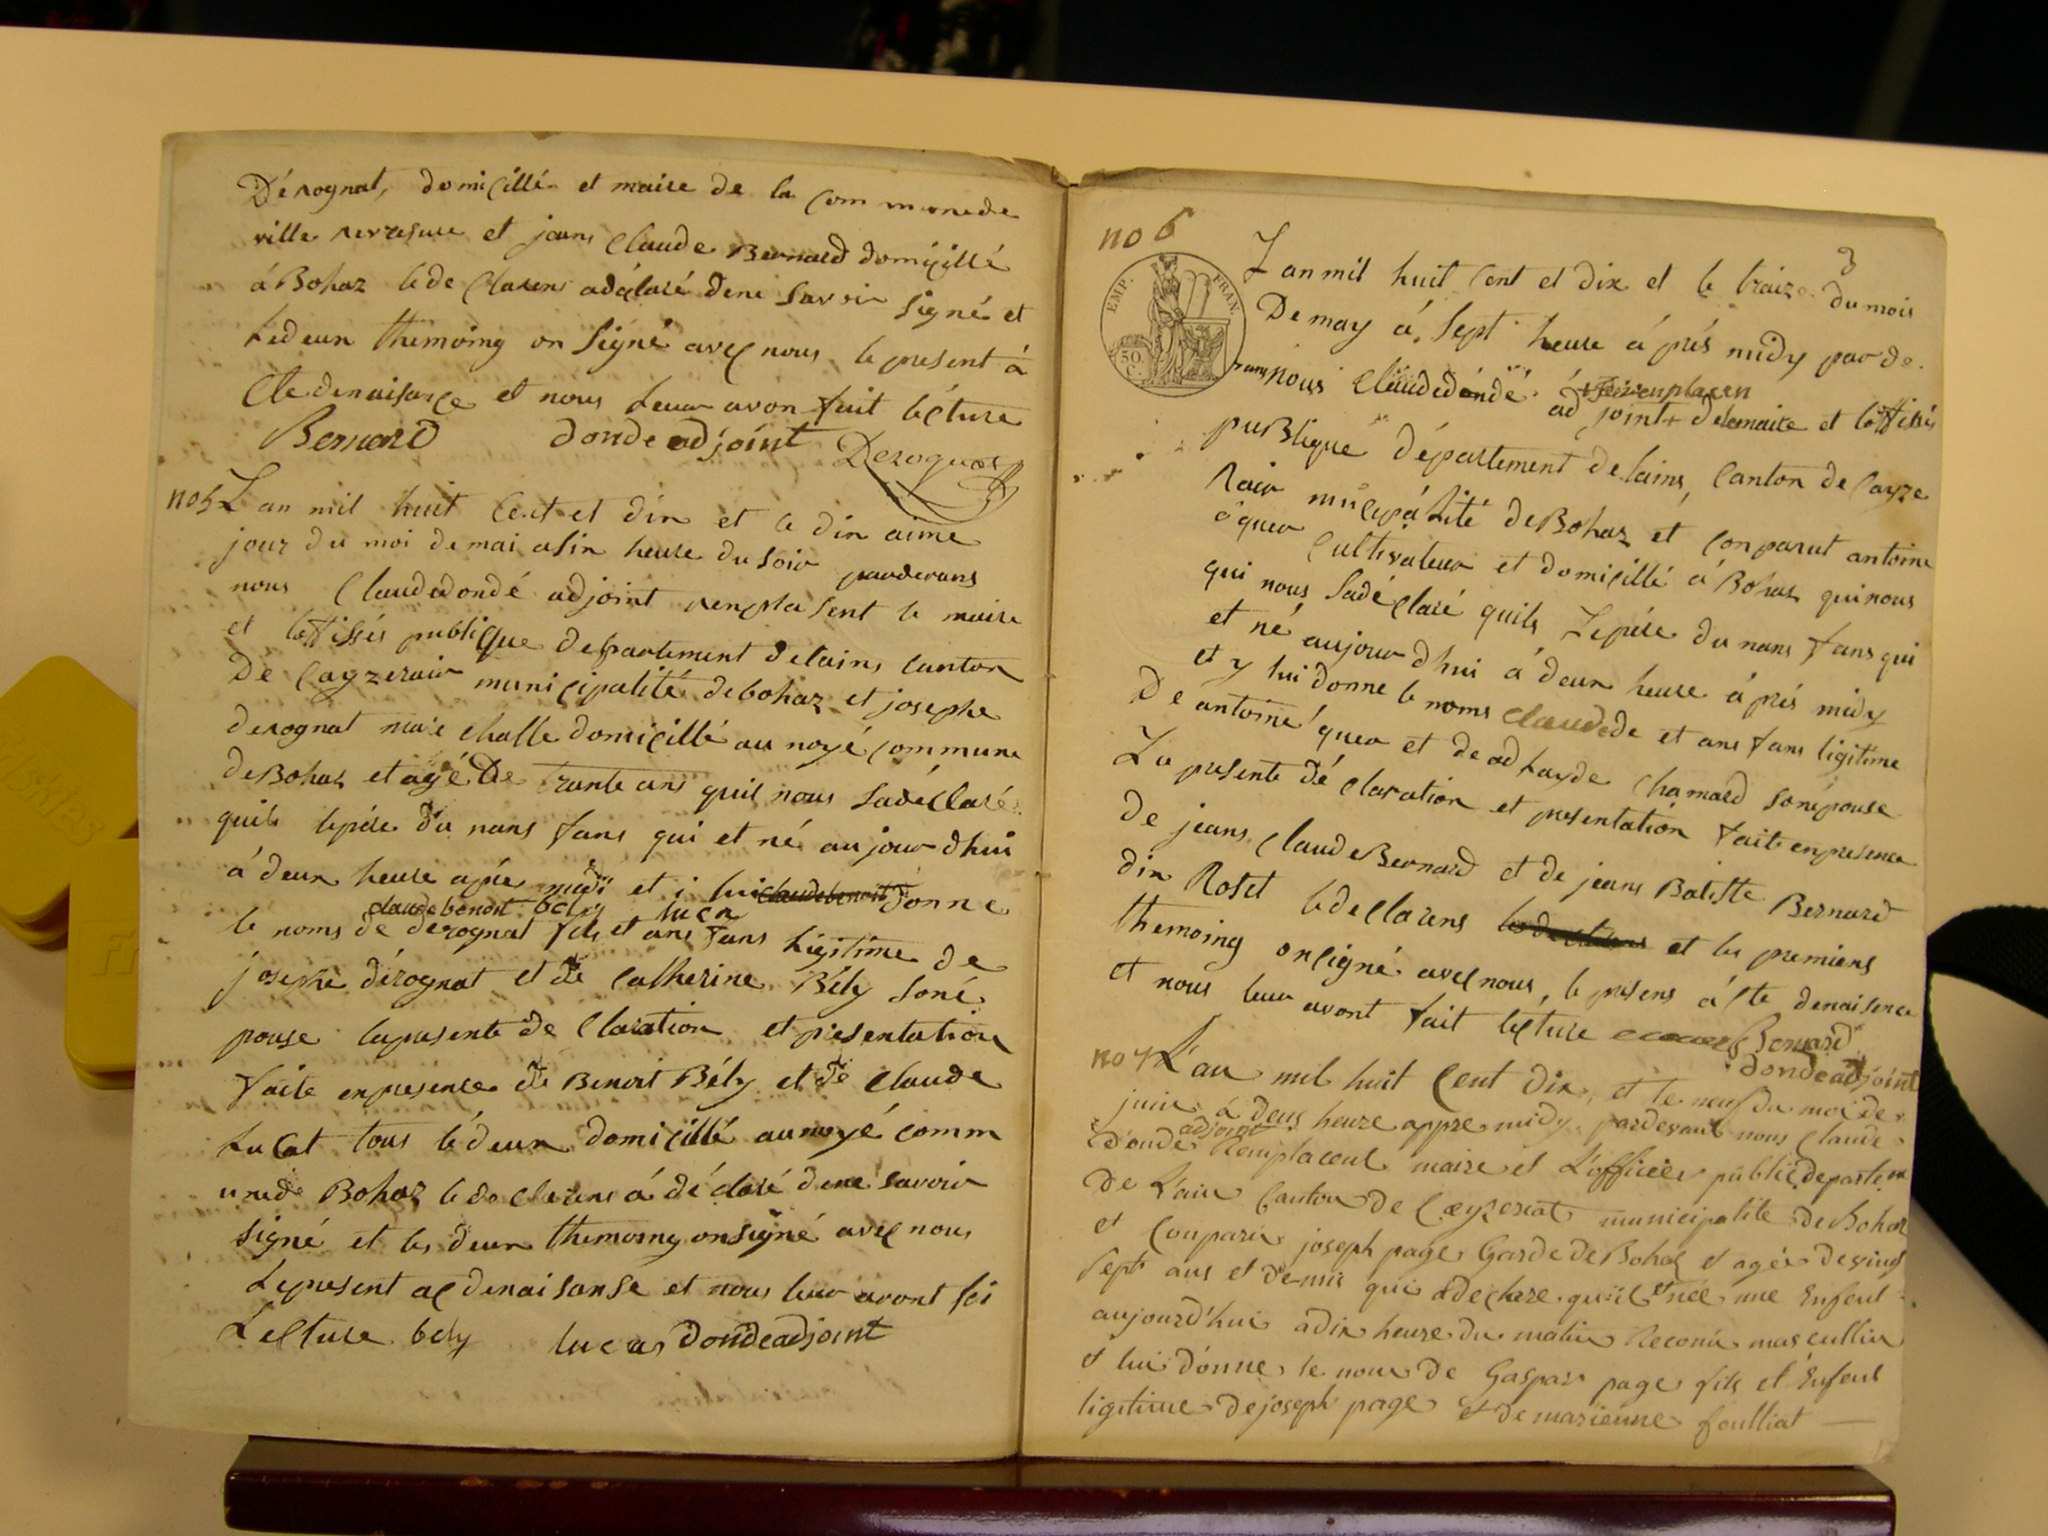 Dérognat, domicillé et maire de la commune de
ville reversure et jeans Claude Bernard domicillé
á Bohaz le de Clarens adéclaré dene savoir signé et
le deux themoing on signé aveç nous le present á
Cte denaisançe et nous leur avon fait leçture
Bernard donde adjoint Derognat
no 5 Lan mil huit Cent et dix et le dix aime
jour du moi de mai asix heure du soir parderans
nous Claudedondé adjoint renplasent le maire
et loffissés publique departement delains canton
De Cayzerair muniçipalité debohaz et josephe
derognat maré challe domiçillé au noyé commune
deBohaz et agé De trante ans quil nous sadéclaré
quils lepére du nans fans qui et né aujour dhui
á deux heure aprée midi et i lui claudebenoit donne
claudebenoit bely lucn
le noms de derognat fils et ans fans ligitime de
josephe dérognat et de Catherine Bély soné
pouse lapresente de Claration et presentation
faite enpresence de Benoit Bély et de Claude
Lucat tous lédeux domiçillé aunoyé comm
unede Bohaz le de Clerens á dé claré dene savoir
signé et les deux themoing onsigné aveç nous
Lepresent aç denaisanse et nous leur avont fai
Leçture bely lucas dondeadjoint
no 6
3
EMP. FRAN.
50
C.
Lan mil huit Cent et dix et le traize du mois
De may á sept heure á prés midy par de
rans nous Claudedondé
adjoint delamaire et loffissés
puBlique département delains, Canton de Cayze
rair muicipálité deBohaz et Conparut antoine
quer Cultivateur et domicillé á Bohaz quinous
qui nous sadé claré quils Lepére du nans fans qui
et né aujour dhui á deux heure á prés midy
et y lui donne le noms claudede et ans fans ligitime
De antoine quer et de adlayde Chamard sonépouse
La presente dé claration et presentation faite enpresence
De jeans Claude Bernard et de jeans Batiste Bernard
dix Roset ledeclarens et les premiens
themoing onsigné aveçnous, le presens áçte denaisence
et nous leur avont fait leçture Bernard
dondeadjoint
no 7 L'an mil huit Cent dix, et le neuf du moi de
juin á deus heure appre midy, pardevant nous Claude
adjoint
donde Remplacent maire et L'officier public departem
De L'ain Canton de Ceyzeriat municipalite de Bohaz
et Conparu joseph page Garde de Bohas et agée de vingt
Sept ans et demis qui adeclare quil et née une Enfent
aujourd'hui adix heure du matin Reconu mascullin
et lui donne le nom de Gaspar page fils et Enfent
ligitime dejoseph page et de marienne foulliat